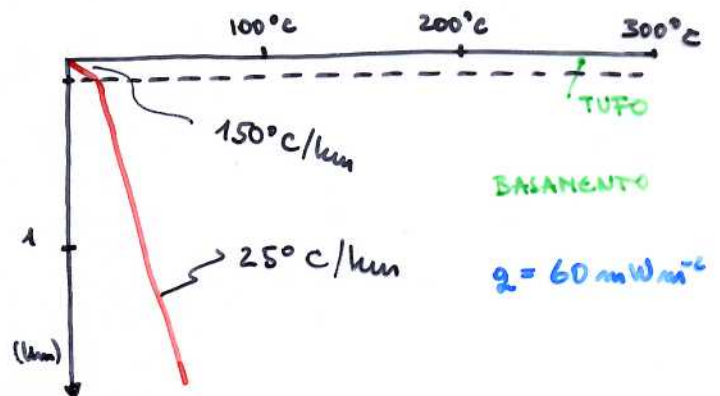 100°C 200°C 300°C
TUFO
150°C/km
BASAMENTO
1
25°C/km
q = 60 mW m⁻²
(km)